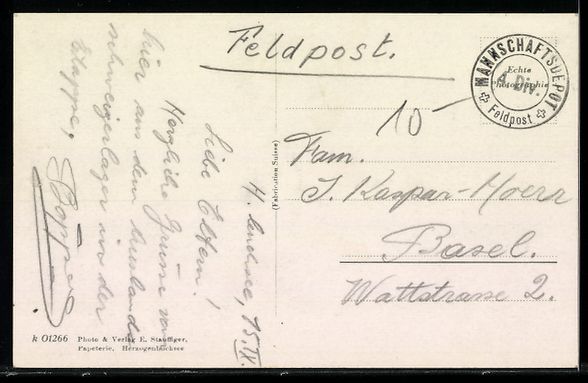 Feldpost.
MANNSCHAFTSDEPOT
4. Div.
Feldpost
Echte
Photographie
10
Fam.
J. Kaspar-Moerr
Basel.
Wattstrasse 2.
15. IX.
Liebe Eltern!
Herzliche Grüsse von
hier aus dem
schweizerlager in der
Etappe,
(Fabrication Suisse)
k 01266 Photo & Verlag E. Stauffiger,
Papeterie, Herzogenbuchsee